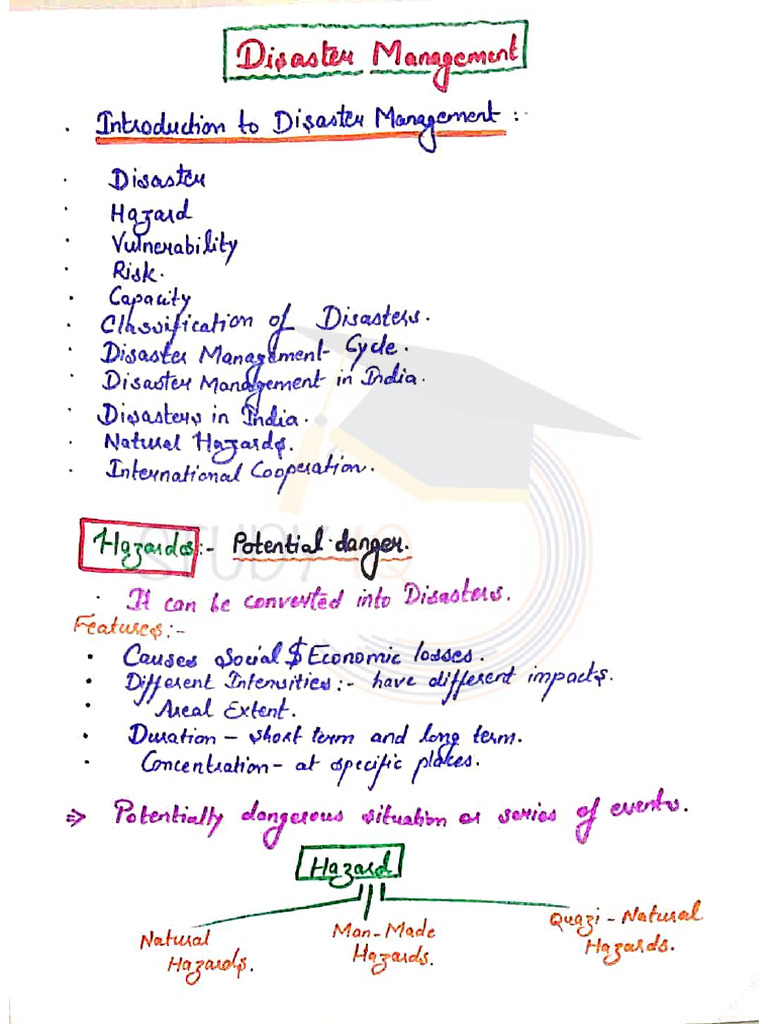 Disaster Management
· Introduction to Disaster Management :-
· Disaster
· Hazard
· Vulnerability
· Risk.
· Capacity
· Classification of Disasters.
· Disaster Management Cycle.
· Disaster Management in India.
· Disasters in India.
· Natural Hazards.
· International Cooperation.
Hazards :- Potential danger.
STUDY IQ
· It can be converted into Disasters.
Features :-
· Causes Social & Economic losses.
· Different Intensities :- have different impacts.
· Areal Extent.
· Duration – short term and long term.
· Concentration – at specific places.
⇒ Potentially dangerous situation or series of events.
Hazard
Natural Hazards.
Man-Made Hazards.
Quazi - Natural Hazards.